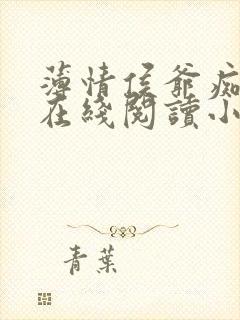 薄情侯爺痴
在綫閱讀小
青葉